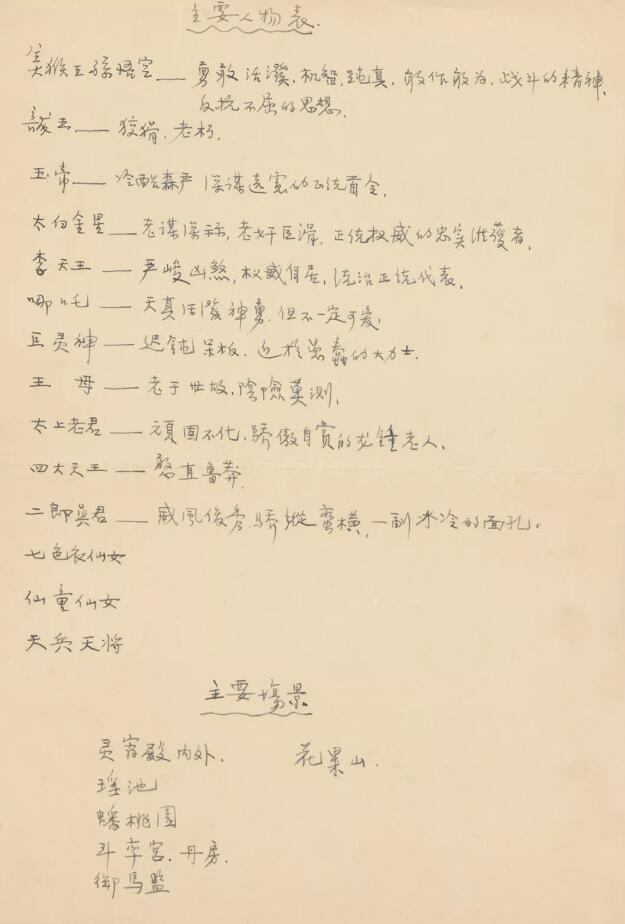 主要人物表.
美猴王孫悟空——勇敢活潑.机智.純真.敢作敢为.战斗的精神.
反抗不屈的思想.
龍王——狡猾.老朽.
玉帝——冷酷森严 深谋远寞的正统首令.
太白金星——老謀深祘,老奸巨滑.正统权威的忠实
李天王——严峻凶煞,权威自居,统治正统代表.
哪吒——天真活潑神勇.但不一定可爱.
巨灵神——迟钝呆板.近於愚蠢的大力士.
王 母——老于世故.陰險莫测.
太上老君——頑固不化.驕傲自賞的尤鍾老人.
四大天王——憨直魯莽.
二郎真君——威風俊秀.驕縱蛮横,一副冰冷的面孔。
七色衣仙女
仙童仙女
天兵天将
主要場景.
灵宵殿内外. 花果山.
瑶池
蟠桃园
斗率宫.丹房.
御馬監